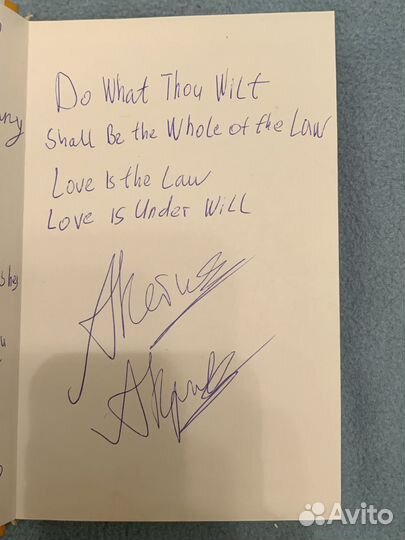 Do What Thou Wilt
Shall Be the Whole of the Law
Love Is the Law
Love Is Under Will
Avito